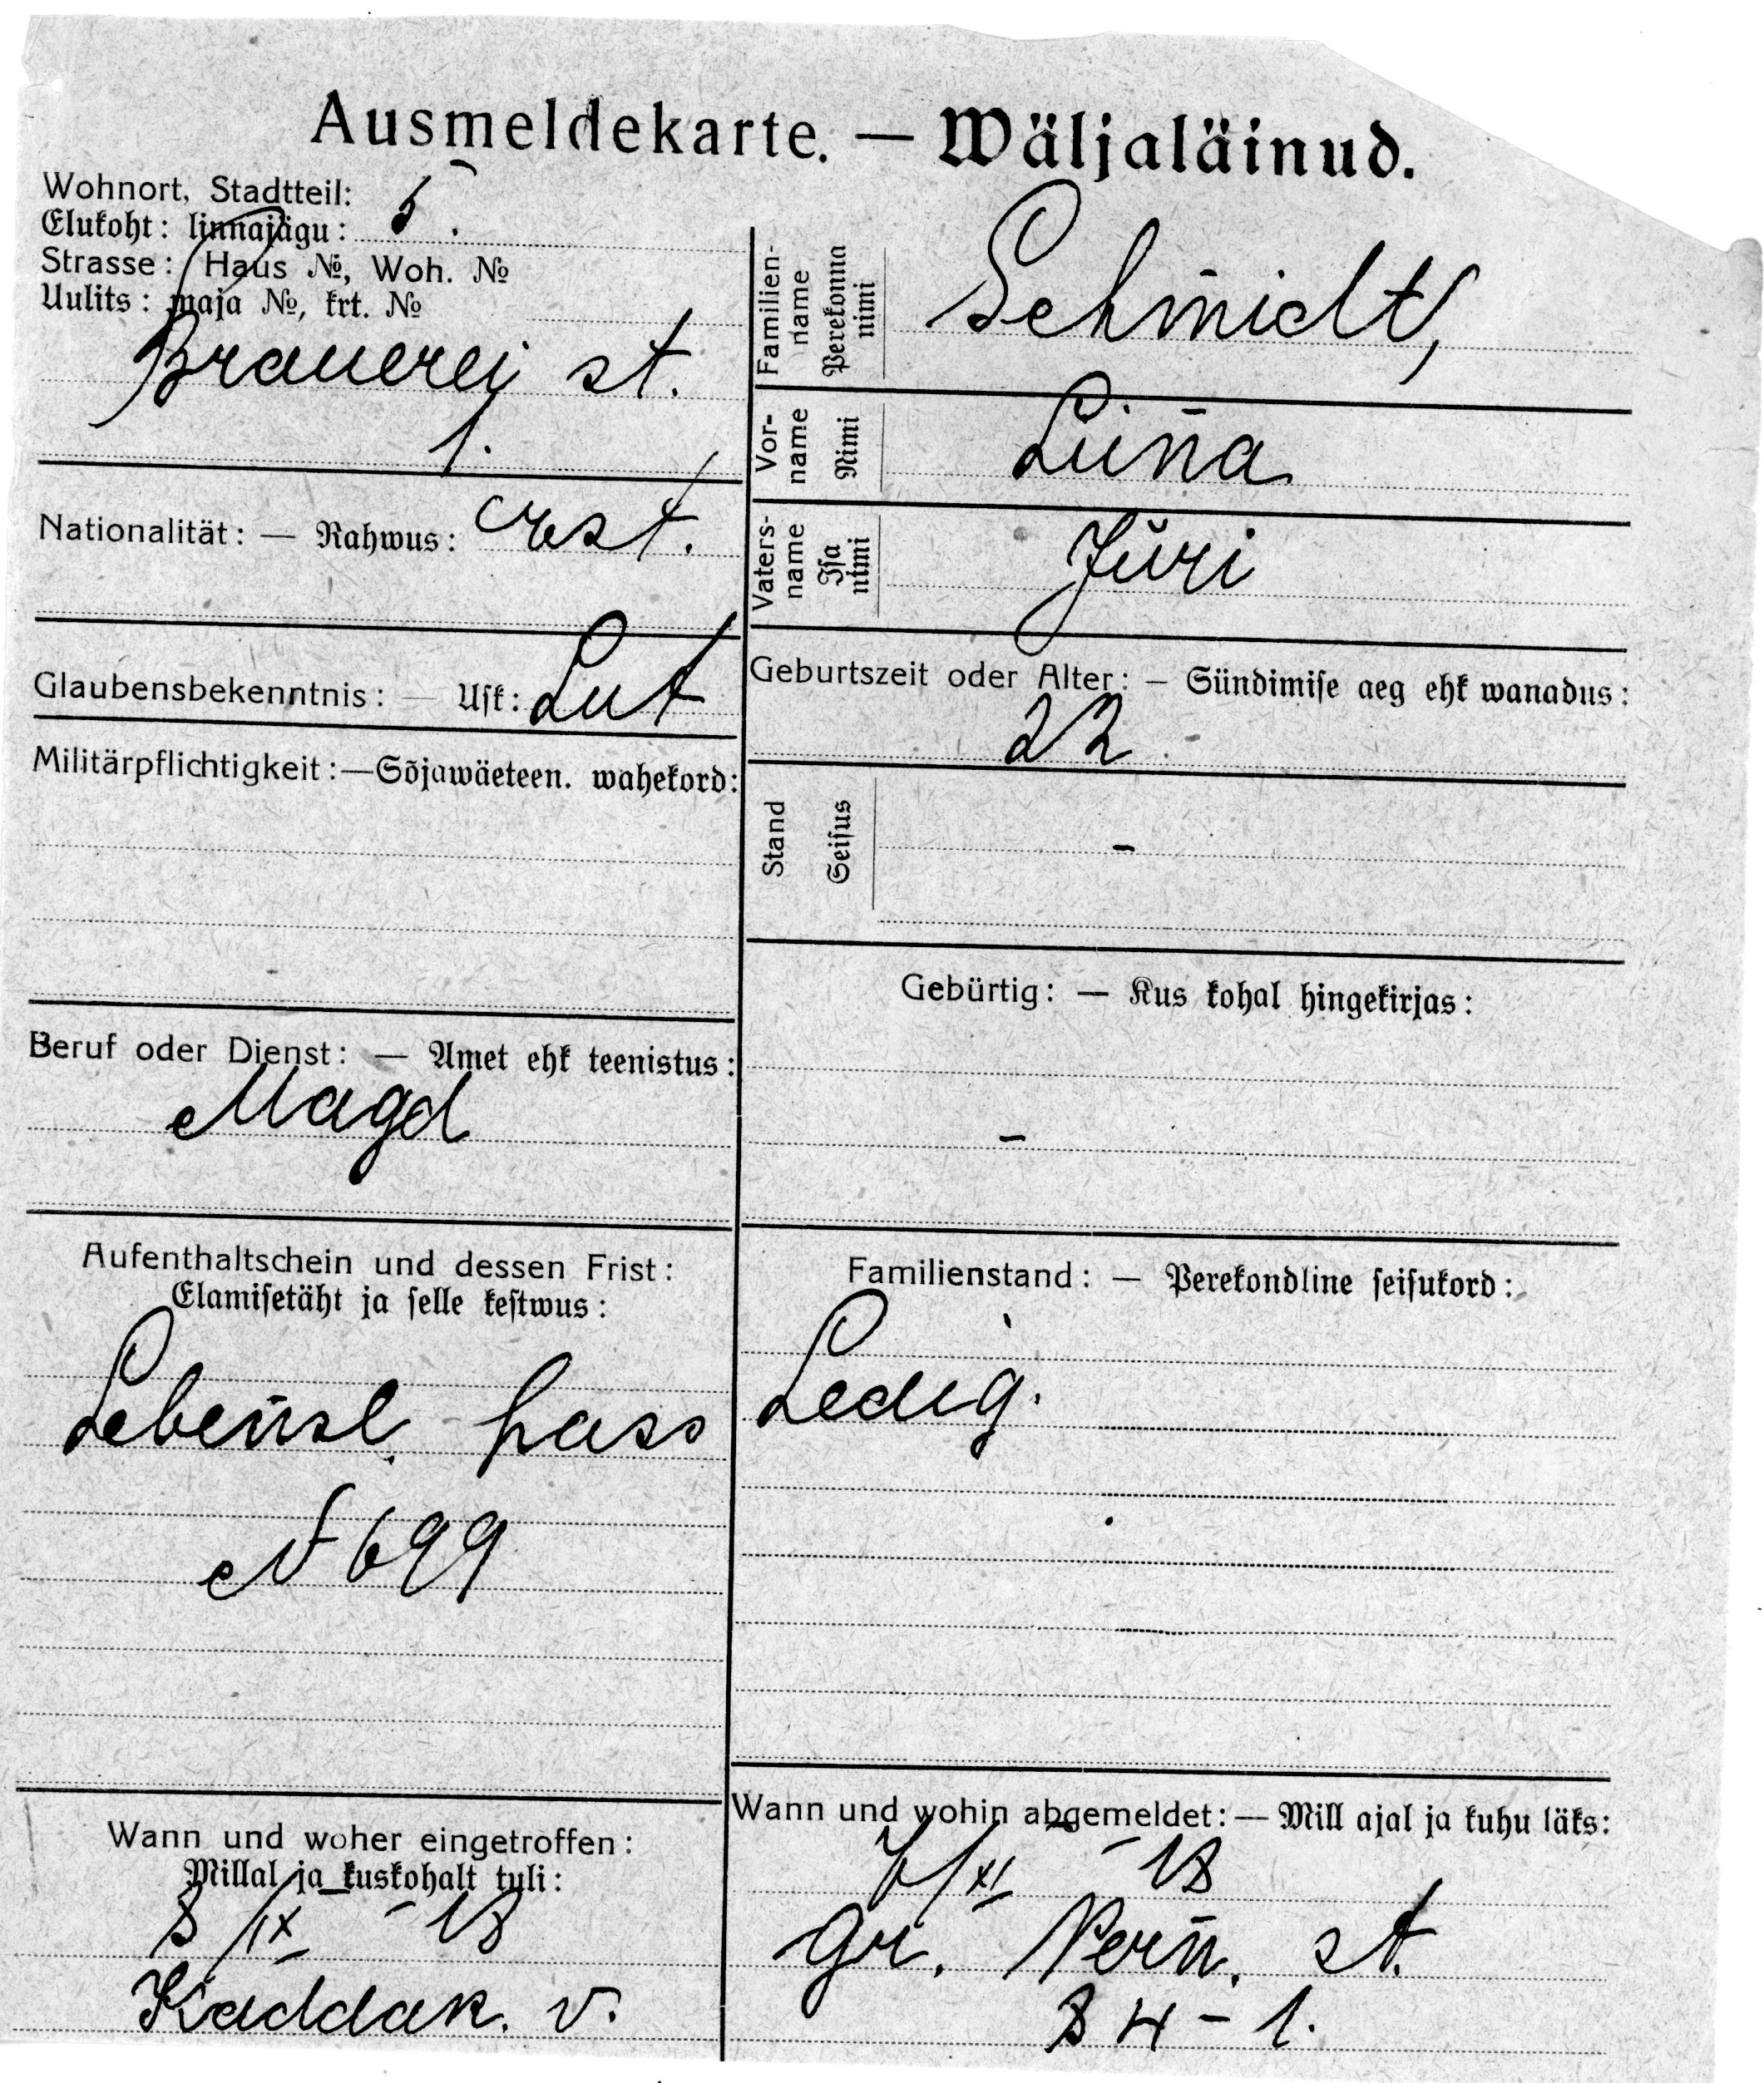 Ausmeldekarte. — Wäljaläinud.
Wohnort, Stadtteil:
Elukoht: linnajägu: 5.
Strasse: Haus №, Woh. №
Uulits: maja №, krt. №
Brauerei st.
1.
Nationalität: — Rahwus: est.
Glaubensbekenntnis: — Usk: Lut
Militärpflichtigkeit: — Sõjawäeteen. wahekord:
Beruf oder Dienst: — Amet ehk teenistus:
Magd
Aufenthaltschein und dessen Frist:
Elamisetäht ja selle kestwus:
Lebensl. pass
N 699
Wann und woher eingetroffen:
Millal ja kuskohalt tuli:
8/IX – 18
Kaddak. v.
Familien-
name
Perekonna
nimi
Schmidt,
Vor-
name
Nimi
Liina
Vaters-
name
Isa
nimi
Jüri
Geburtszeit oder Alter: — Sündimise aeg ehk wanadus:
22.
Stand
Seisus
–
Gebürtig: — Kus kohal hingekirjas:
–
Familienstand: — Perekondline seisukord:
Ledig.
Wann und wohin abgemeldet: — Mill ajal ja kuhu läks:
/XI – 18
Gr. Pern. st.
84 – 1.